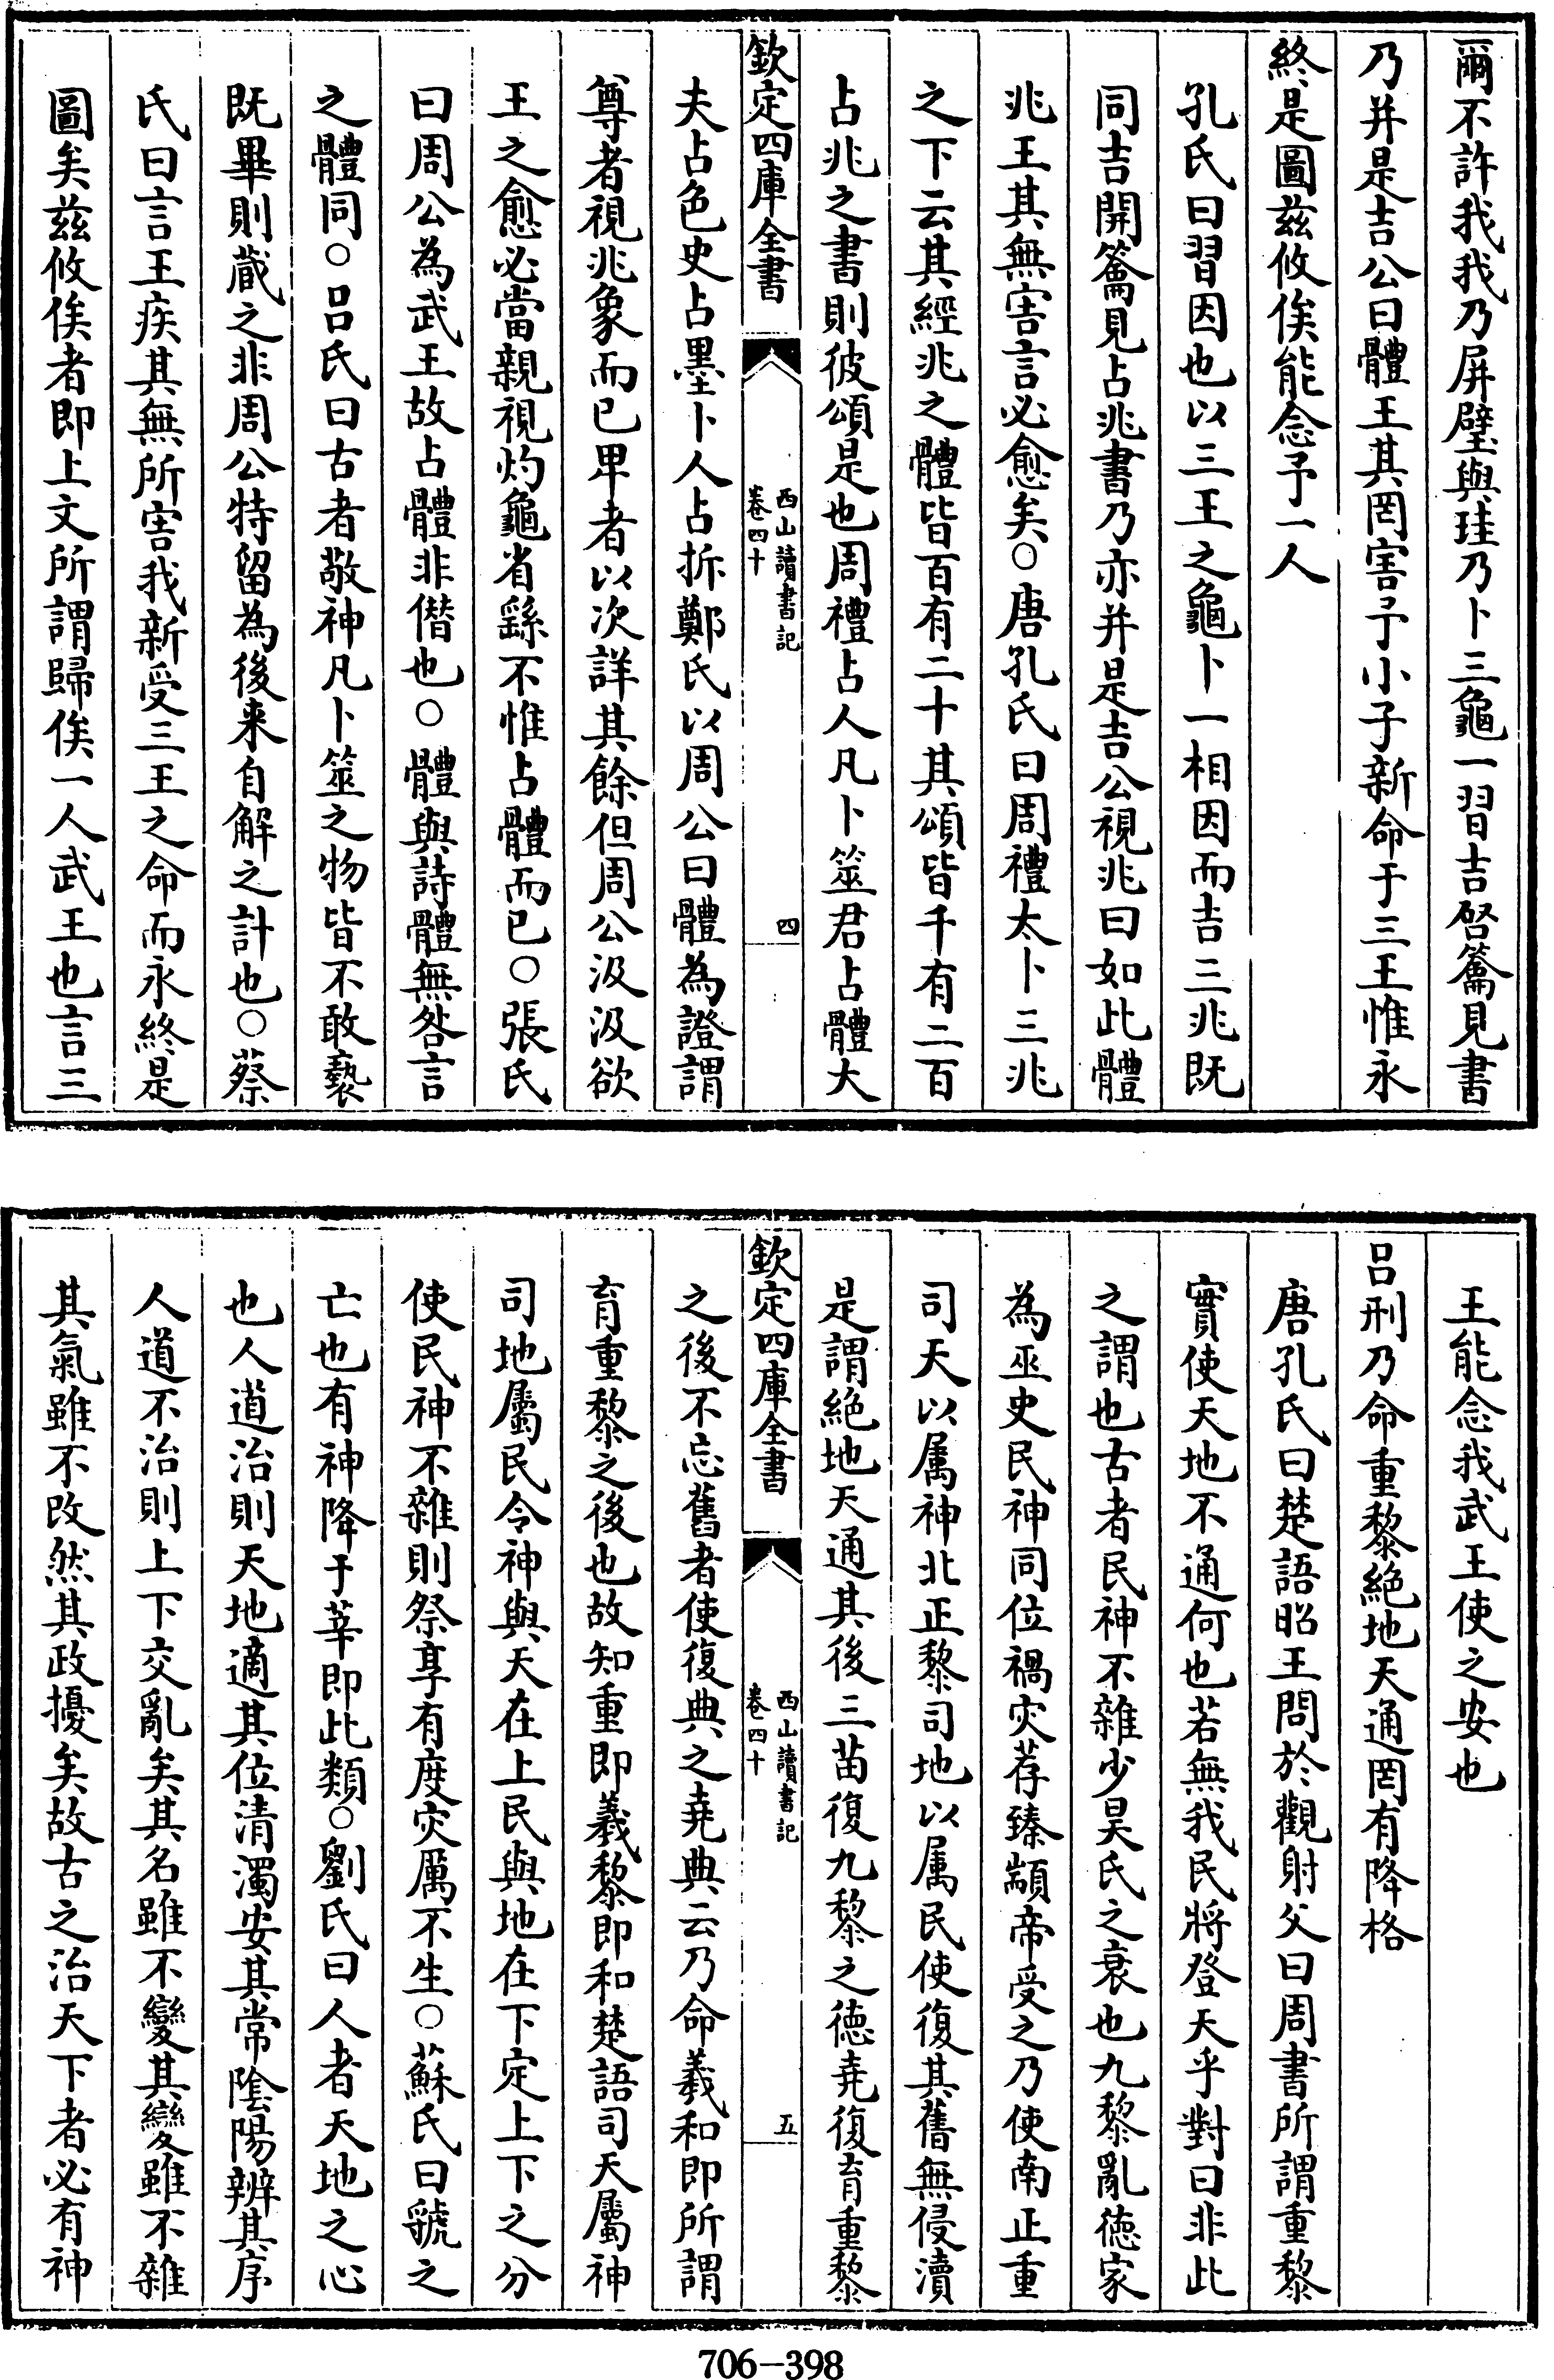 爾不許我我乃屏璧與珪乃卜三龜一習吉啓籥見書
乃并是吉公曰體王其罔害予小子新命于三王惟永
終是圖茲攸俟能念予一人
孔氏曰習因也以三王之龜卜一相因而吉三兆既
同吉開籥見占兆書乃亦并是吉公視兆曰如此體
兆王其無害言必愈矣○唐孔氏曰周禮太卜三兆
之下云其經兆之體皆百有二十其頌皆千有二百
占兆之書則彼頌是也周禮占人凡卜筮君占體大
欽定四庫全書
西山讀書記
卷四十
四
夫占色史占墨卜人占拆鄭氏以周公曰體為證謂
尊者視兆象而已卑者以次詳其餘但周公汲汲欲
王之愈必當親視灼龜省繇不惟占體而已○張氏
曰周公為武王故占體非僭也○體與詩體無咎言
之體同○呂氏曰古者敬神凡卜筮之物皆不敢褻
既畢則蕆之非周公特留為後来自解之計也○蔡
氏曰言王疾其無所害我新受三王之命而永終是
圖矣茲攸俟者即上文所謂歸俟一人武王也言三
王能念我武王使之安也
呂刑乃命重黎絶地天通罔有降格
唐孔氏曰楚語昭王問於觀射父曰周書所謂重黎
實使天地不通何也若無我民將登天乎對曰非此
之謂也古者民神不雜少昊氏之衰也九黎亂徳家
為巫史民神同位禍灾荐臻顓帝受之乃使南正重
司天以属神北正黎司地以属民使復其舊無侵瀆
是謂絶地天通其後三苗復九黎之徳堯復育重黎
欽定四庫全書
西山讀書記
卷四十
五
之後不忘舊者使復典之堯典云乃命羲和即所謂
育重黎之後也故知重即羲黎即和楚語司天屬神
司地屬民令神與天在上民與地在下定上下之分
使民神不雜則祭享有度灾厲不生○蘇氏曰虢之
亡也有神降于莘即此類○劉氏曰人者天地之心
也人道治則天地適其位清濁安其常陰陽辨其序
人道不治則上下交亂矣其名雖不變其變雖不雜
其氣雖不改然其政擾矣故古之治天下者必有神
706-398